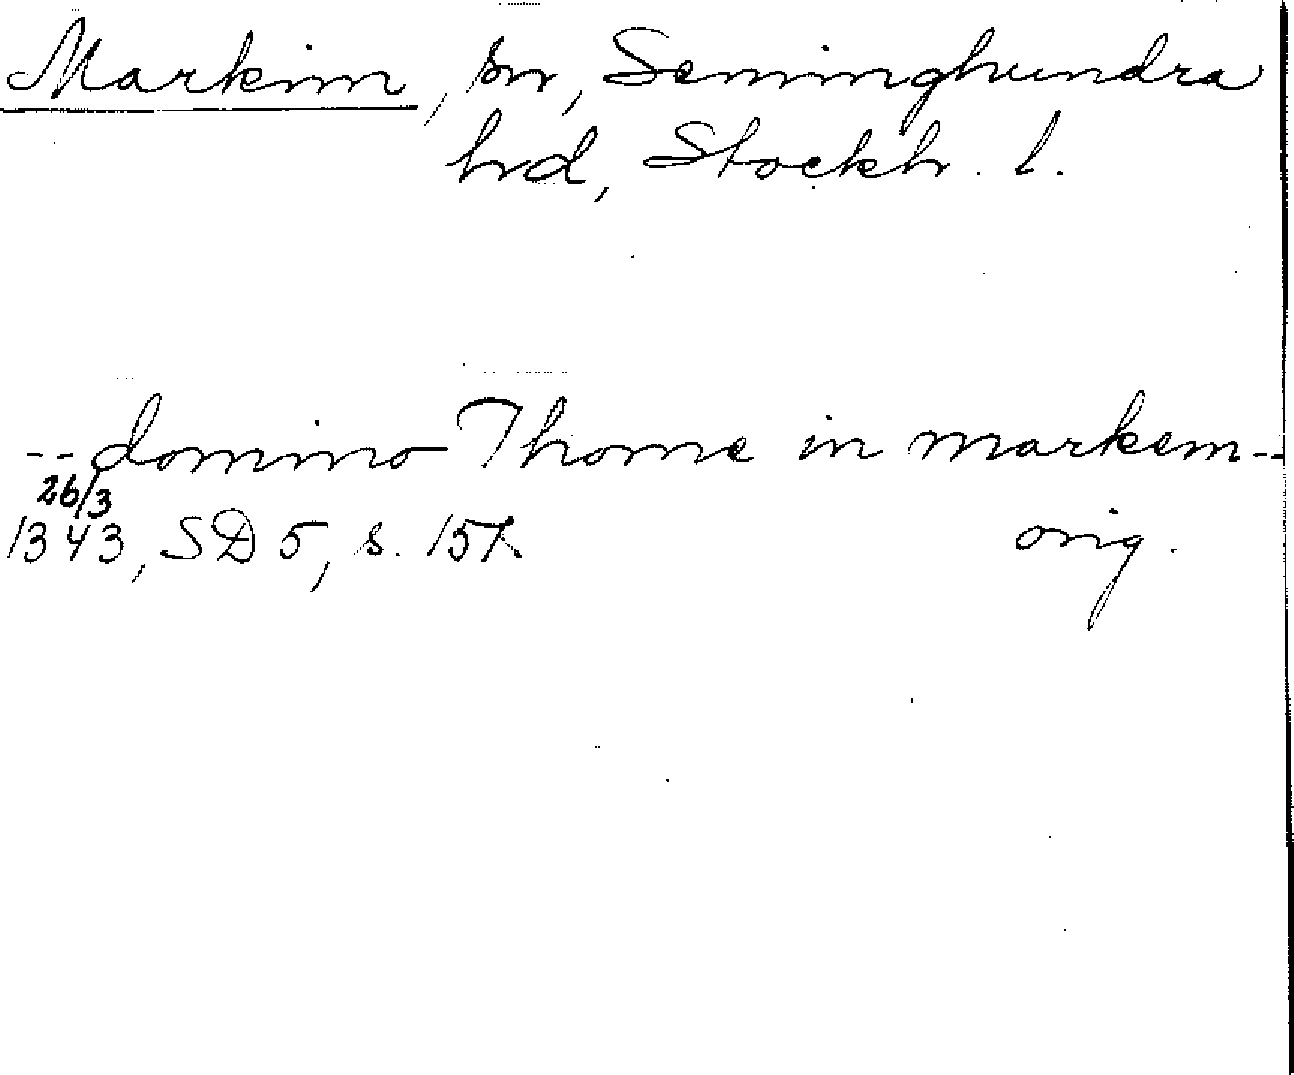 Markim, sn, Seminghundra
hd, Stockh. l.
-- domino Thome in markem --
26/3
1343, SD 5, s. 157
orig.